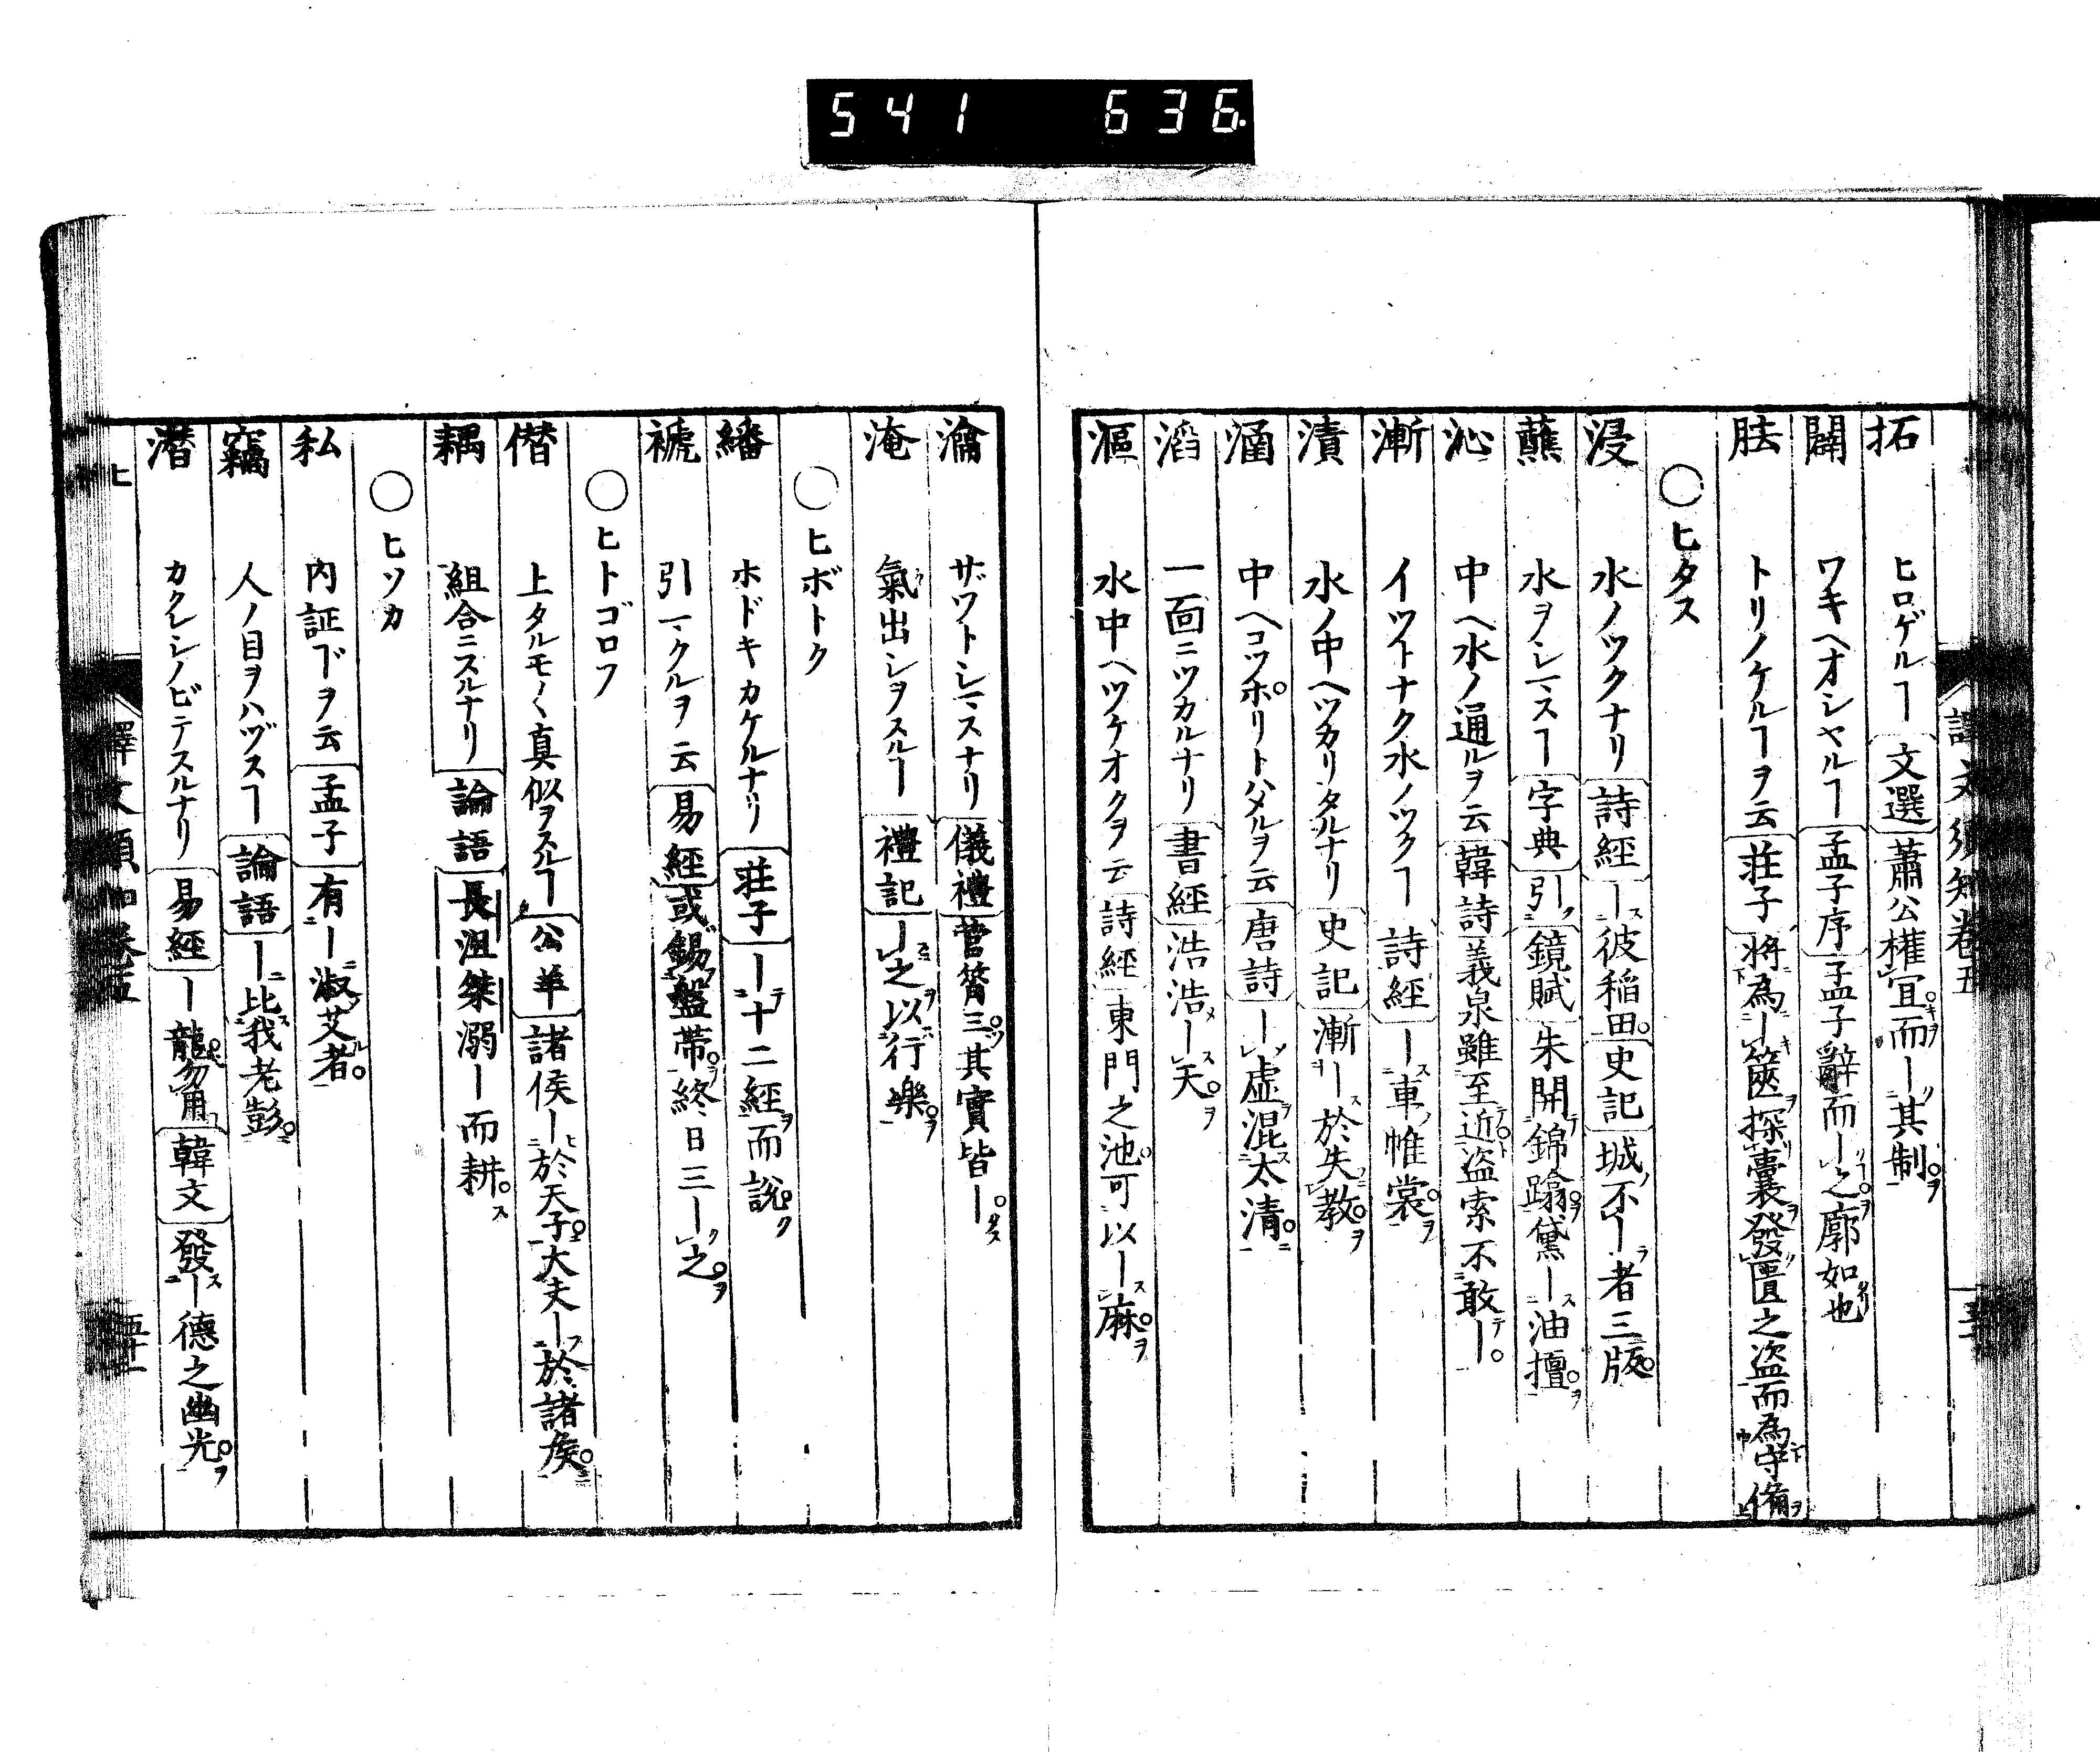 541 636
譯文須知卷五
拓 ヒロゲルヿ 文選 蕭公權宜而ー其制
闢 ワキヘオシヤルヿ 孟子序 孟子辭而ー之廓如也
胠 トリノケルヿヲ云 莊子 將為ー篋探囊發匱之盜而為守備
○ヒタス
浸 水ノツクナリ 詩經 ー彼稲田 史記 城不ー者三版
蘸 水ヲシマスヿ 字典 引 鏡賦 朱開錦蹹黛ー油檀
沁 中ヘ水ノ通ルヲ云 韓詩 義泉雖至近盜索不敢ー
漸 イツトナク水ノツクヿ 詩經 ー車帷裳
漬 水ノ中ヘツカリタルナリ 史記 漸ー於失教
涵 中ヘコツポリトハメルヲ云 唐詩 ー虛混太清
滔 一面ニツカルナリ 書經 浩浩ー天
漚 水中ヘツケオクヲ云 詩經 東門之池可以ー麻
瀹 サワトシマスナリ 儀禮 菅筲三其實皆ー
淹 氣出シヲスルヿ 禮記 ー之以行樂
○ヒボトク
繙 ホドキカケルナリ 莊子 ー十二經而說
褫 引マクルヲ云 易經 或錫鞶帶終日三ー之
○ヒトゴロフ
僭 上タルモノヽ真似ヲスルヿ 公羊 諸侯ー於天子大夫ー於諸侯
耦 組合ニスルナリ 論語 長沮桀溺ー而耕
○ヒソカ
私 內証下ヲ云 孟子 有ー淑艾者
竊 人ノ目ヲハヅスヿ 論語 ー比我老彭
潛 カクレシノビテスルナリ 易經 ー龍勿用 韓文 發ー德之幽光
ヒ 譯文須知卷五 五十一